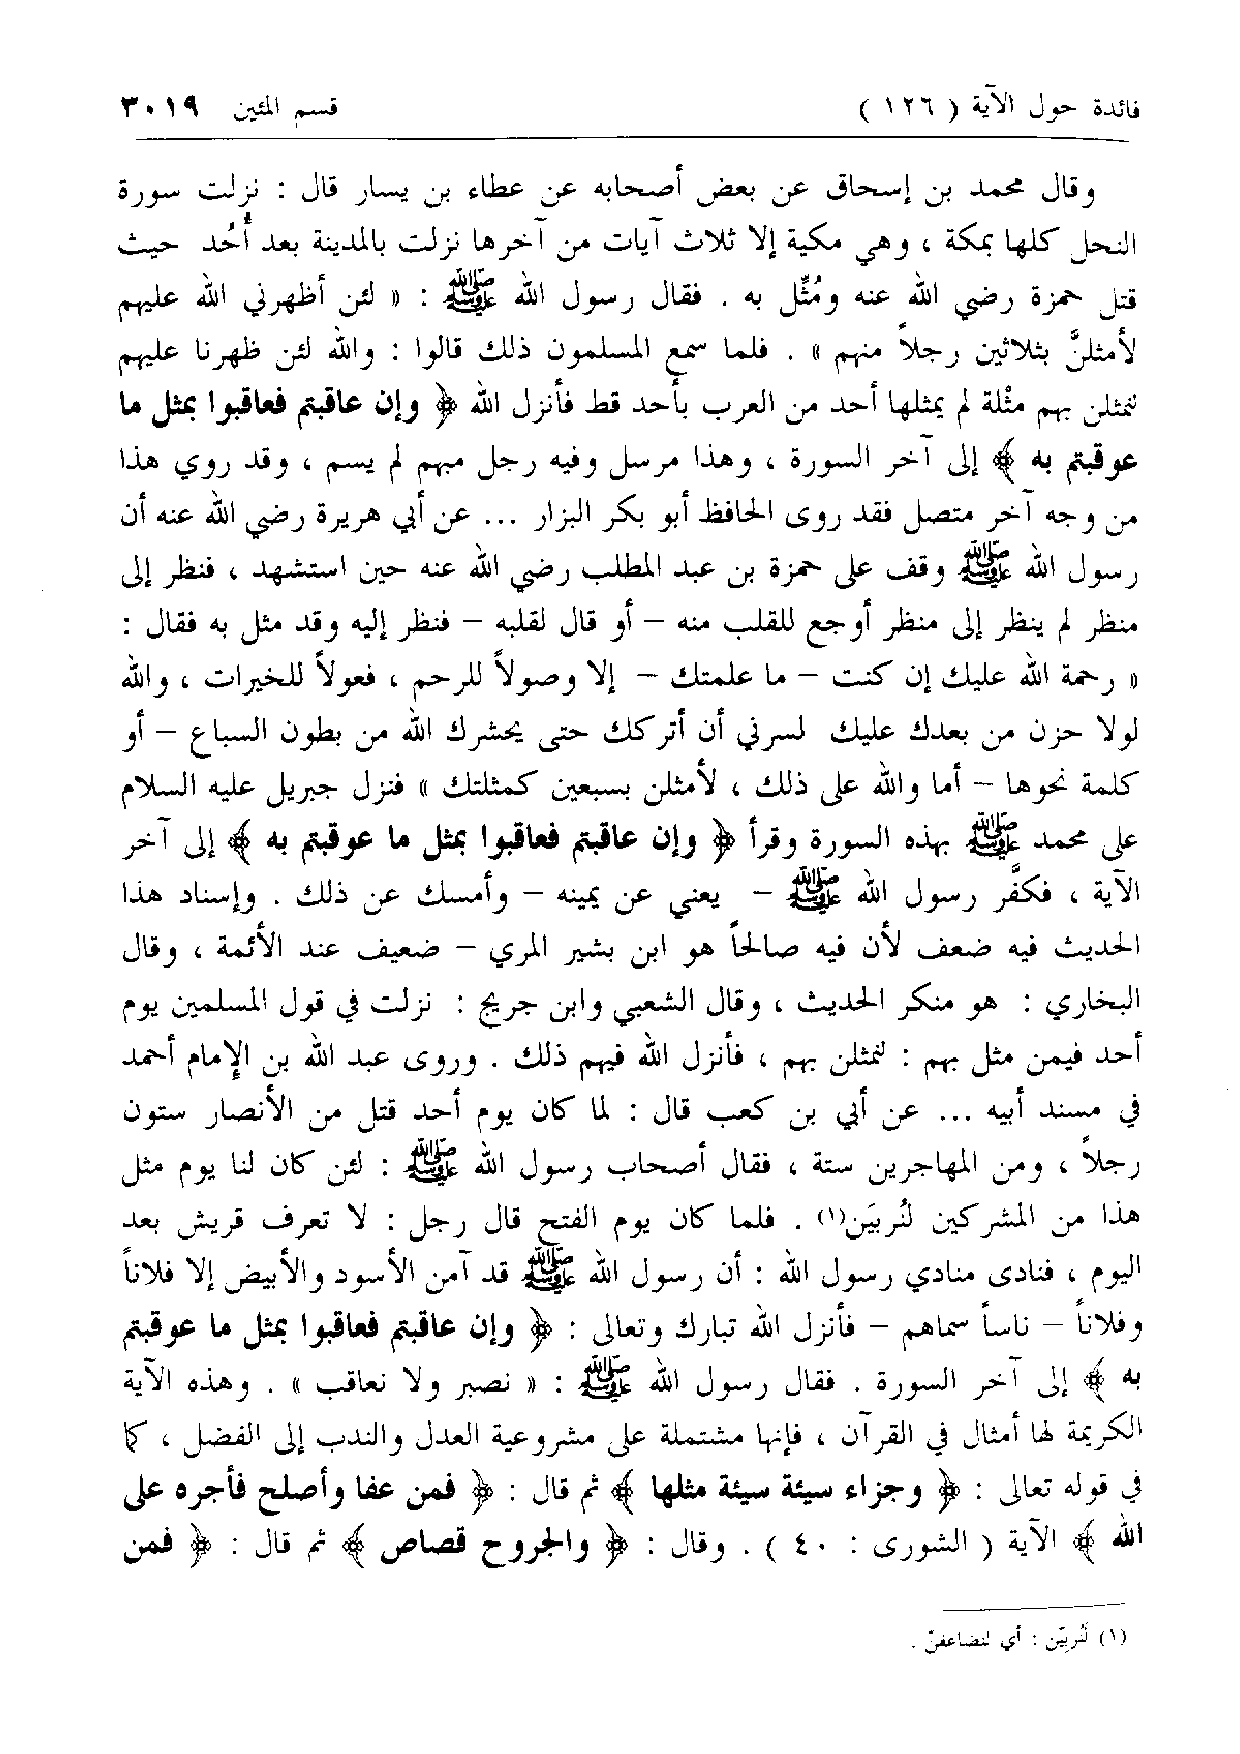 فائدة حول الآية ( ١٢٦ ) قسم المئين ٣٠١٩
وقال محمد بن إسحاق عن بعض أصحابه عن عطاء بن يسار قال : نزلت سورة
النحل كلها بمكة ، وهي مكية إلا ثلاث آيات من آخرها نزلت بالمدينة بعد أُحُد حيث
قتل حمزة رضي الله عنه ومُثِّل به . فقال رسول الله ﷺ : « لئن أظهرني الله عليهم
لأمثلنَّ بثلاثين رجلاً منهم » . فلما سمع المسلمون ذلك قالوا : والله لئن ظهرنا عليهم
لنمثلن بهم مثْلة لم يمثلها أحد من العرب بأحد قط فأنزل الله ﴿ وإن عاقبتم فعاقبوا بمثل ما
عوقبتم به ﴾ إلى آخر السورة ، وهذا مرسل وفيه رجل مبهم لم يسم ، وقد روي هذا
من وجه آخر متصل فقد روى الحافظ أبو بكر البزار ... عن أبي هريرة رضي الله عنه أن
رسول الله ﷺ وقف على حمزة بن عبد المطلب رضي الله عنه حين استشهد ، فنظر إلى
منظر لم ينظر إلى منظر أوجع للقلب منه – أو قال لقلبه – فنظر إليه وقد مثل به فقال :
« رحمة الله عليك إن كنت – ما علمتك – إلا وصولاً للرحم ، فعولاً للخيرات ، والله
لولا حزن من بعدك عليك لسرني أن أتركك حتى يحشرك الله من بطون السباع – أو
كلمة نحوها – أما والله على ذلك ، لأمثلن بسبعين كمثلتك » فنزل جبريل عليه السلام
على محمد ﷺ بهذه السورة وقرأ ﴿ وإن عاقبتم فعاقبوا بمثل ما عوقبتم به ﴾ إلى آخر
الآية ، فكفَّر رسول الله ﷺ – يعني عن يمينه – وأمسك عن ذلك . وإسناد هذا
الحديث فيه ضعف لأن فيه صالحاً هو ابن بشير المري – ضعيف عند الأئمة ، وقال
البخاري : هو منكر الحديث ، وقال الشعبي وابن جريج : نزلت في قول المسلمين يوم
أحد فيمن مثل بهم : لنمثلن بهم ، فأنزل الله فيهم ذلك . وروى عبد الله بن الإمام أحمد
في مسند أبيه ... عن أبي بن كعب قال : لما كان يوم أحد قتل من الأنصار ستون
رجلاً ، ومن المهاجرين ستة ، فقال أصحاب رسول الله ﷺ : لئن كان لنا يوم مثل
هذا من المشركين لنُربيَن(١) . فلما كان يوم الفتح قال رجل : لا تعرف قريش بعد
اليوم ، فنادى منادي رسول الله : أن رسول الله ﷺ قد آمن الأسود والأبيض إلا فلاناً
وفلاناً – ناساً سماهم – فأنزل الله تبارك وتعالى : ﴿ وإن عاقبتم فعاقبوا بمثل ما عوقبتم
به ﴾ إلى آخر السورة . فقال رسول الله ﷺ : « نصبر ولا نعاقب » . وهذه الآية
الكريمة لها أمثال في القرآن ، فإنها مشتملة على مشروعية العدل والندب إلى الفضل ، كما
في قوله تعالى : ﴿ وجزاء سيئة سيئة مثلها ﴾ ثم قال : ﴿ فمن عفا وأصلح فأجره على
الله ﴾ الآية ( الشورى : ٤٠ ) . وقال : ﴿ والجروح قصاص ﴾ ثم قال : ﴿ فمن
(١) لَنُربِيّن : أي لنضاعفنّ .